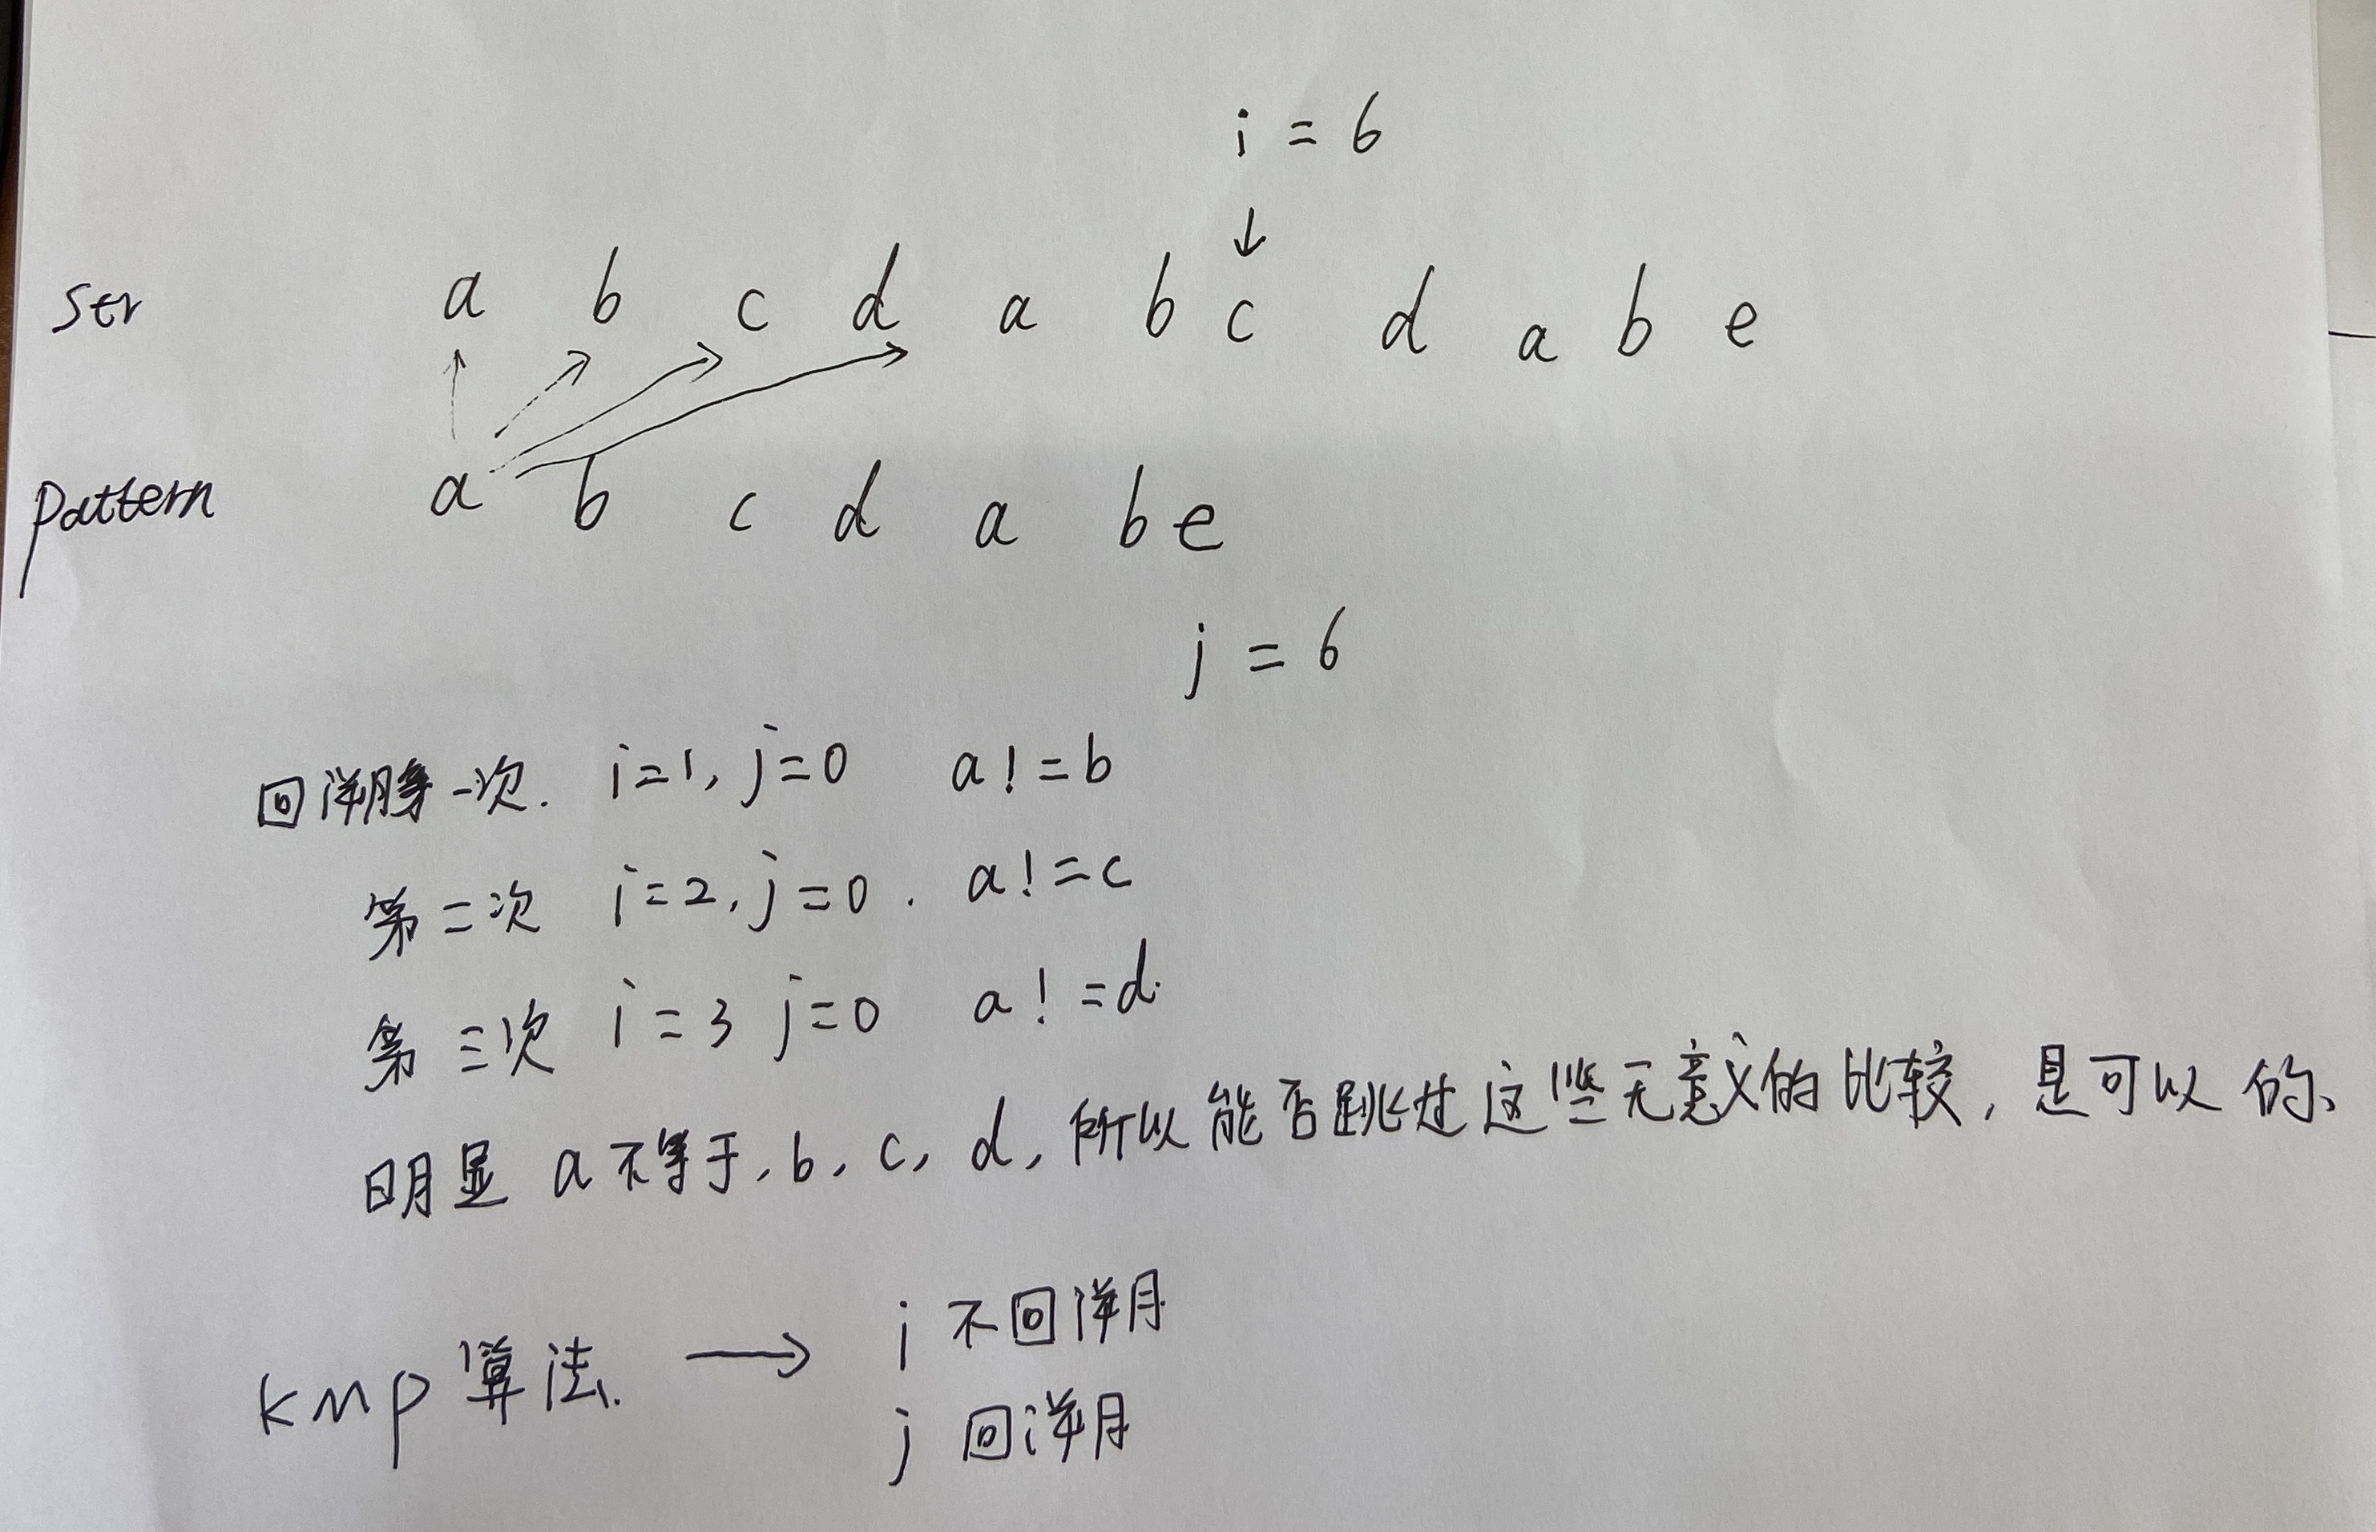 i = 6
↓
str a b c d a b c d a b e
pattern a b c d a b e
j = 6
回溯第一次. i=1, j=0 a!=b
第二次 i=2, j=0. a!=c
第三次 i=3 j=0 a!=d.
明显 a不等于, b, c, d, 所以能否跳过这些无意义的比较, 是可以的、
kmp算法. → i 不回溯
j 回溯